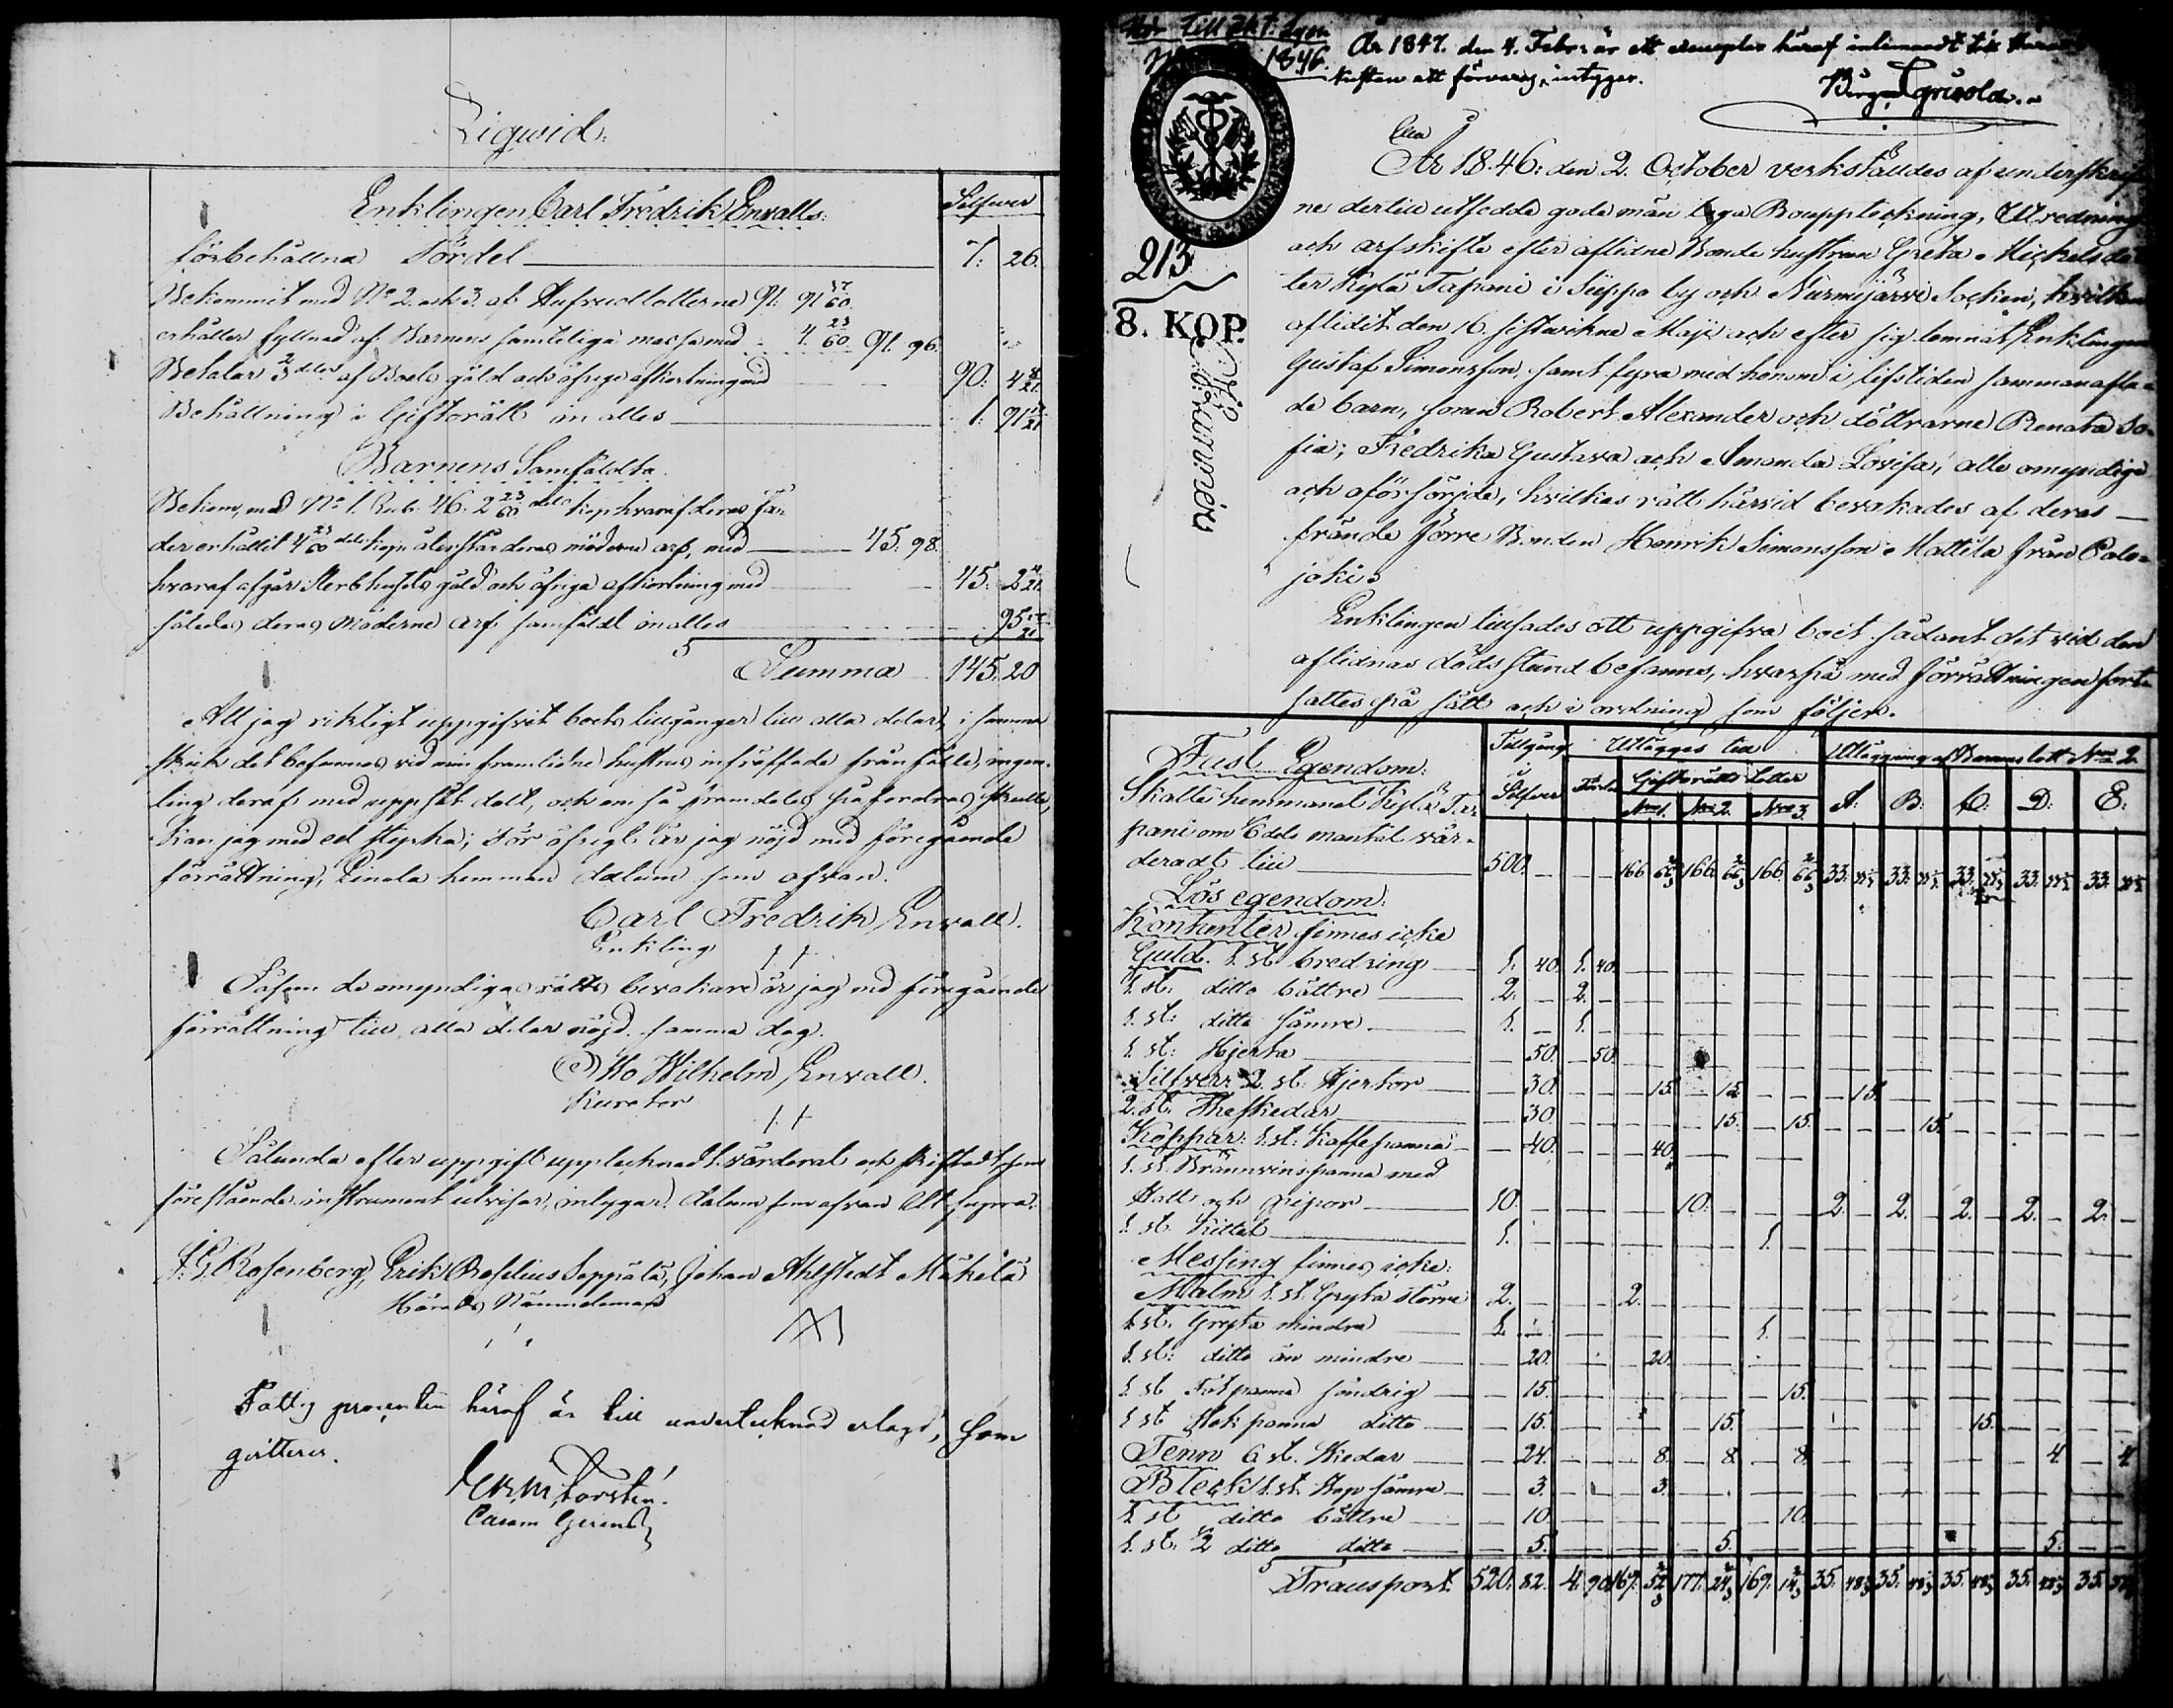 Liqwid:
Enklingen Carl Fredrik Envalls:
Silfwer
förbehållna Fördel 7. 26.
Bekommit med No 2. och 3. af Hufvudlotterne 91: 91 37/60
erhåller fyllnad af Barnens samteliga massa med 4. 23/60 91. 96.
Betalar 2/3 delar af Boets gäld och öfrige afkortning med 90: 4 8/21
Behållning i Giftorätt in alles 1. 91 13/21
Barnens Samfäldta
Bekom, med No 1. Rub: 46. 2 23/60 dels kop hvaraf deras Fa-
der erhållit 4 23/60 dels kop: återstår deras möderne arf, med 45. 98.
hvaraf afgår Sterbhusets gäld och öfriga afkortning med 45. 2 4/21
således deras Möderne arf samfäldt in alles 95 17/21
Summa 145. 20
Att jag riktigt uppgifvit boets tillgångar till alla delar, i samma
skick det befannes vid min framlidne hustrus inträffade frånfälle, ingen-
ting deraf med uppsåt dolt, och om så framdeles påfordras skulle,
kan jag med ed styrka; För öfrigt är jag nöjd med föregående
förrättning, Linola hemman datum som ofvan.
Carl Fredrik Envall.
Enkling
Såsom de omyndigas rätts bevakare är jag med föregående
förrättning till alla delar nöjd. samma dag.
Otto Wilhelm Envall.
Kurator
Sålunda efter uppgift upptecknadt värderat och skiftadt som
förestående instrument utvisar, intygar. datum som ofvan Ut supra.
F. G. Rosenberg, Erik Roselius Seppälä, Johan Ahlstedt Mäkelä
Härads Nämndeman
Fattig procenten häraf är till undertecknad erlagd, som
qvitteras.
Forstén.
Hör till Akt: Lyon
1846.
År 1847. den 4. Febr: är ett exemplar häraf inlemnadt till Härads
kistan att förvaras, intygar.
213
8. KOP.
År 1846: den 2. October verkstäldes af underskrif-
ne dertill utsedde gode män laga Bouppteckning, Utredning
och arfskifte efter aflidne Bonde hustrun Greta Michelsdo-
ter Kylä Tapani i Siippo by och Nurmijärvi Socken, hvilken
aflidit den 16. sistvikne Maji och efter sig lemnat Enklingen
Gustaf Simonsson, samt fyra med honom i lifstiden sammanafla-
de barn, sonen Robert Alexander och döttrarne Renata So-
fia, Fredrika Gustava och Amanda Lovisa, alla omyndiga
och oförsörjde, hvilkas rätt härvid bevakades af deras
frände förre Bonden Henrik Simonsson Mattila från Palo-
joki.
Enklingen tillsades att uppgifva boet sådant det vid den
aflidnas dödsstund befanns, hvarpå med förrättningen fort-
sattes på sätt och i ordning som följer.
Fast Egendom:
Tillgång i Silfwer
Utlägges till
Fördel
Giftorätts Lotter
No 1. No 2. No 3.
Utläggning af Barnens lott No 2.
A: B: C: D: E:
Skatte hemmanet Kylä Ta-
pani om 6 dels mantal vär-
deradt till 500. 166. 66 2/3 166. 66 2/3 166. 66 2/3 33. 33 1/3 33. 33 1/3 33. 33 1/3 33. 33 1/3 33. 33 1/3
Lös egendom:
Kontanter finnes icke
Guld. 1. st. bredring 1. 40. 1. 40.
1. st: ditto bättre 2. 2.
1. st: ditto sämre 1. 1.
1. st: Hjerta 50. 50.
Silfver 2. st. Hjertor 30. 15. 15. 15.
2. st. Theskedar 30. 15. 15. 15.
Koppar: 1. st: Kaffepanna 40. 40.
1. st. Brännvinspanna med
Hatt och pipor 10. 10. 2. 2. 2. 2. 2.
1. st. Kittel 1. 1.
Messing finnes icke:
Malm 1. st. Gryta större 2. 2.
1. st. Gryta mindre 1. 1.
1. st: ditto än mindre 20. 20.
1. st Fotpanna söndrig 15. 15.
1 st Stekpanna ditto 15. 15. 15.
Tenn 6 st. Skedar 24. 8. 8. 8. 4. 4
Bleck 1. st. Kop sämre 3. 3.
1. st ditto bättre 10. 10.
1. st. 1/2 ditto ditto 5. 5. 5.
Transport. 520. 82. 4. 90. 169. 52 2/3 177. 24 2/3 169. 14 2/3 35. 48 1/3 35. 48 1/3 35. 48 1/3 35. 35.